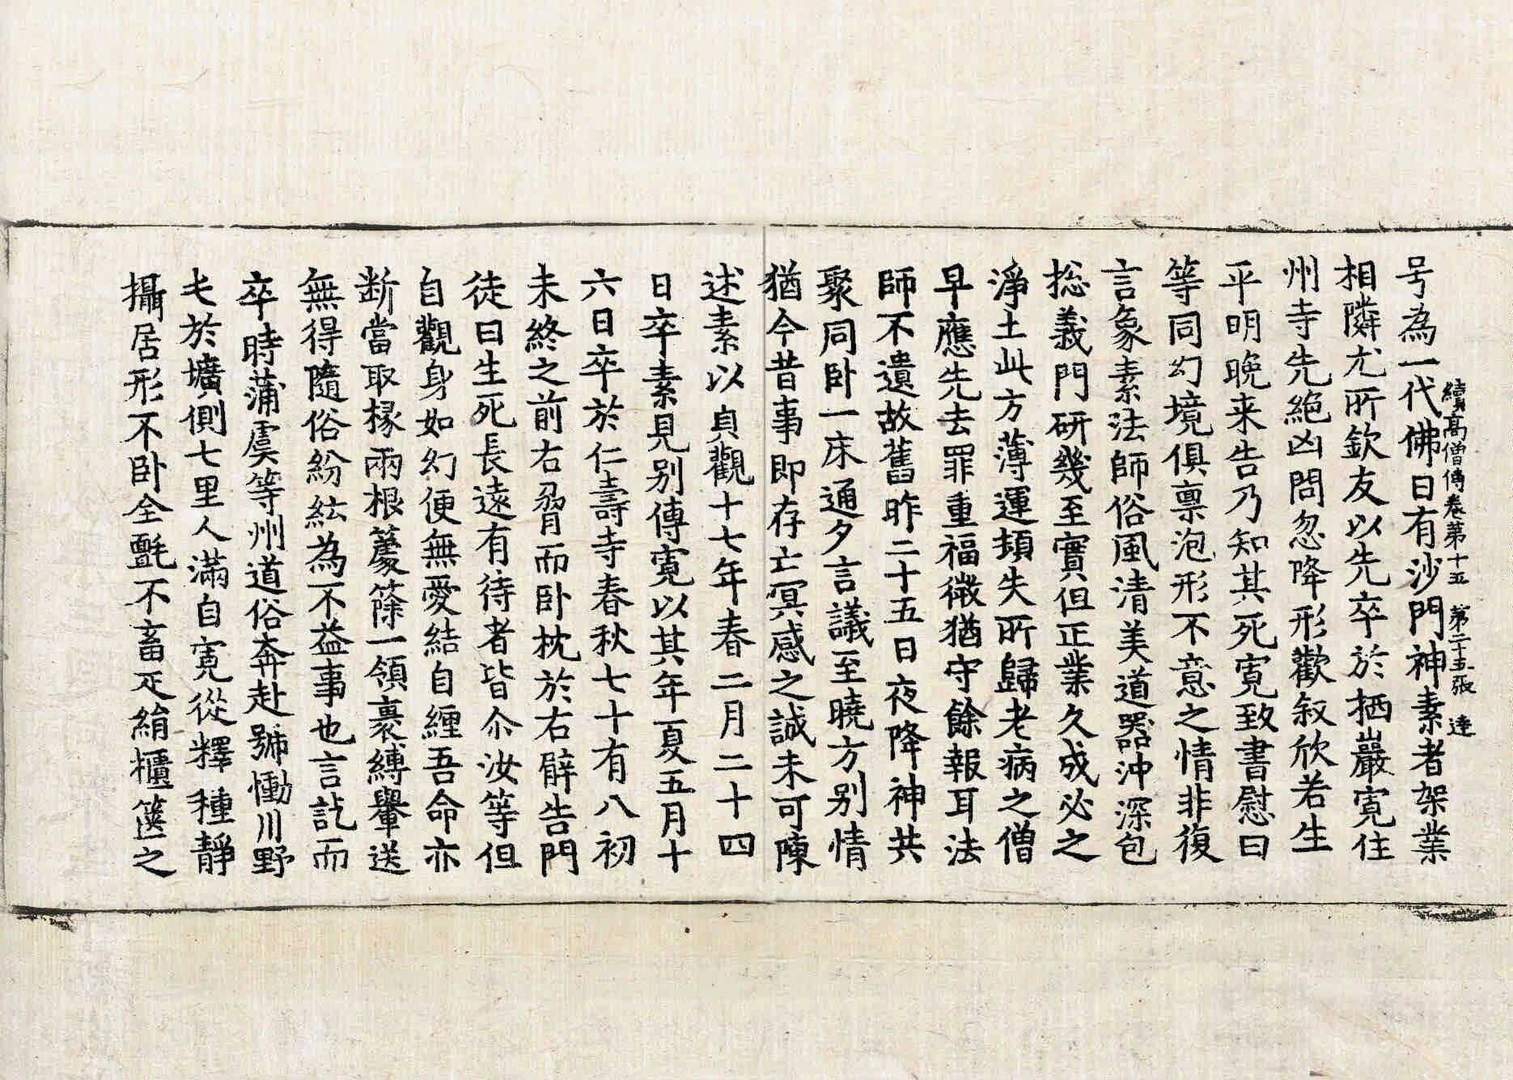 續高僧傳卷第十五 第二十五張 達
号為一代佛日有沙門神素者架業
相隣尤所欽友以先卒於栖巖寬住
州寺先絶凶問忽降形歡叙欣若生
平明晚来告乃知其死寬致書慰曰
等同幻境俱禀泡形不意之情非復
言象素法師俗風清美道器沖深包
捴義門研幾至實但正業久成必之
淨土此方薄運頓失所歸老病之僧
早應先去罪重福微猶守餘報耳法
師不遺故舊昨二十五日夜降神共
聚同卧一床通夕言議至曉方别情
猶今昔事即存亡冥感之誠未可陳
述素以貞觀十七年春二月二十四
日卒素見别傳寬以其年夏五月十
六日卒於仁壽寺春秋七十有八初
未終之前右脅而卧枕於右臂告門
徒曰生死長遠有待者皆尒汝等但
自觀身如幻便無愛結自纏吾命亦
断當取椽兩根䕠篨一領裹縛轝送
無得隨俗紛紜為不益事也言訖而
卒時蒲虞等州道俗奔赴號慟川野
屯於壙側七里人滿自寬從釋種靜
攝居形不卧全氈不畜疋絹櫃篋之